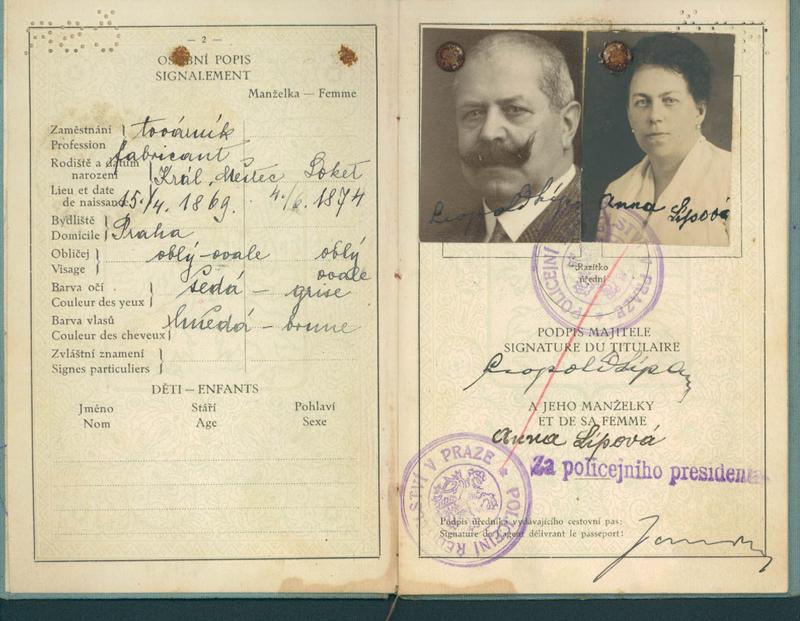 — 2 —
OSOBNÍ POPIS
SIGNALEMENT
Manželka — Femme
Zaměstnání
Profession
továrník
fabricant
Rodiště a datum
narození
Lieu et date
de naissance
Král. Městec Loket
15./4. 1869. 4./6. 1874
Bydliště
Domicile
Praha
Obličej
Visage
oblý-ovale oblý
ovale
Barva očí
Couleur des yeux
šedá — grise
Barva vlasů
Couleur des cheveux
hnědá — brune
Zvláštní znamení
Signes particuliers
DĚTI — ENFANTS
Jméno Stáří Pohlaví
Nom Age Sexe
Leopold
Anna Lípová
Razítko
úřední
POLICEJNÍ ŘEDITELSTVÍ V PRAZE
PODPIS MAJITELE
SIGNATURE DU TITULAIRE
Leopold Lípa
A JEHO MANŽELKY
ET DE SA FEMME
Anna Lípová
Za policejního presidenta
POLICEJNÍ ŘEDITELSTVÍ V PRAZE
Podpis úředníka vydávajícího cestovní pas:
Signature de l'agent délivrant le passeport: